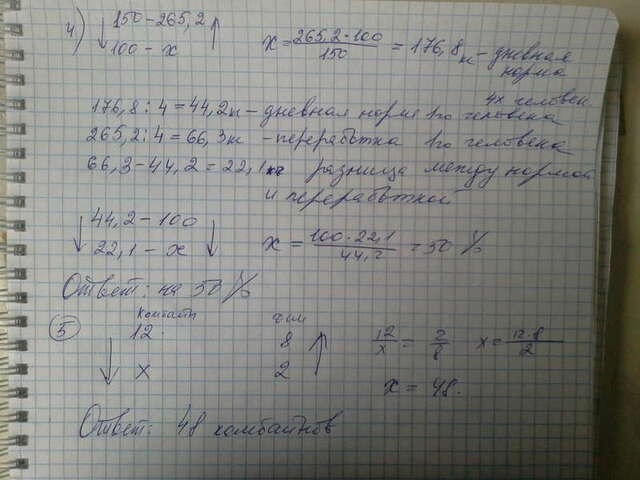 4) 150 – 265,2
100 – x
x = 265,2·100 / 150 = 176,8 к – дневная норма 4х человек
176,8 : 4 = 44,2 к – дневная норма 1го человека
265,2 : 4 = 66,3 к – переработка 1го человека
66,3 – 44,2 = 22,1 разница между нормой
и переработкой
44,2 – 100
22,1 – x
x = 100·22,1 / 44,2 = 50 %
Ответ: на 50 %
5
12 8
x 2
12/x = 2/8 x = 12·8 / 2
x = 48.
Ответ: 48 комбайнов